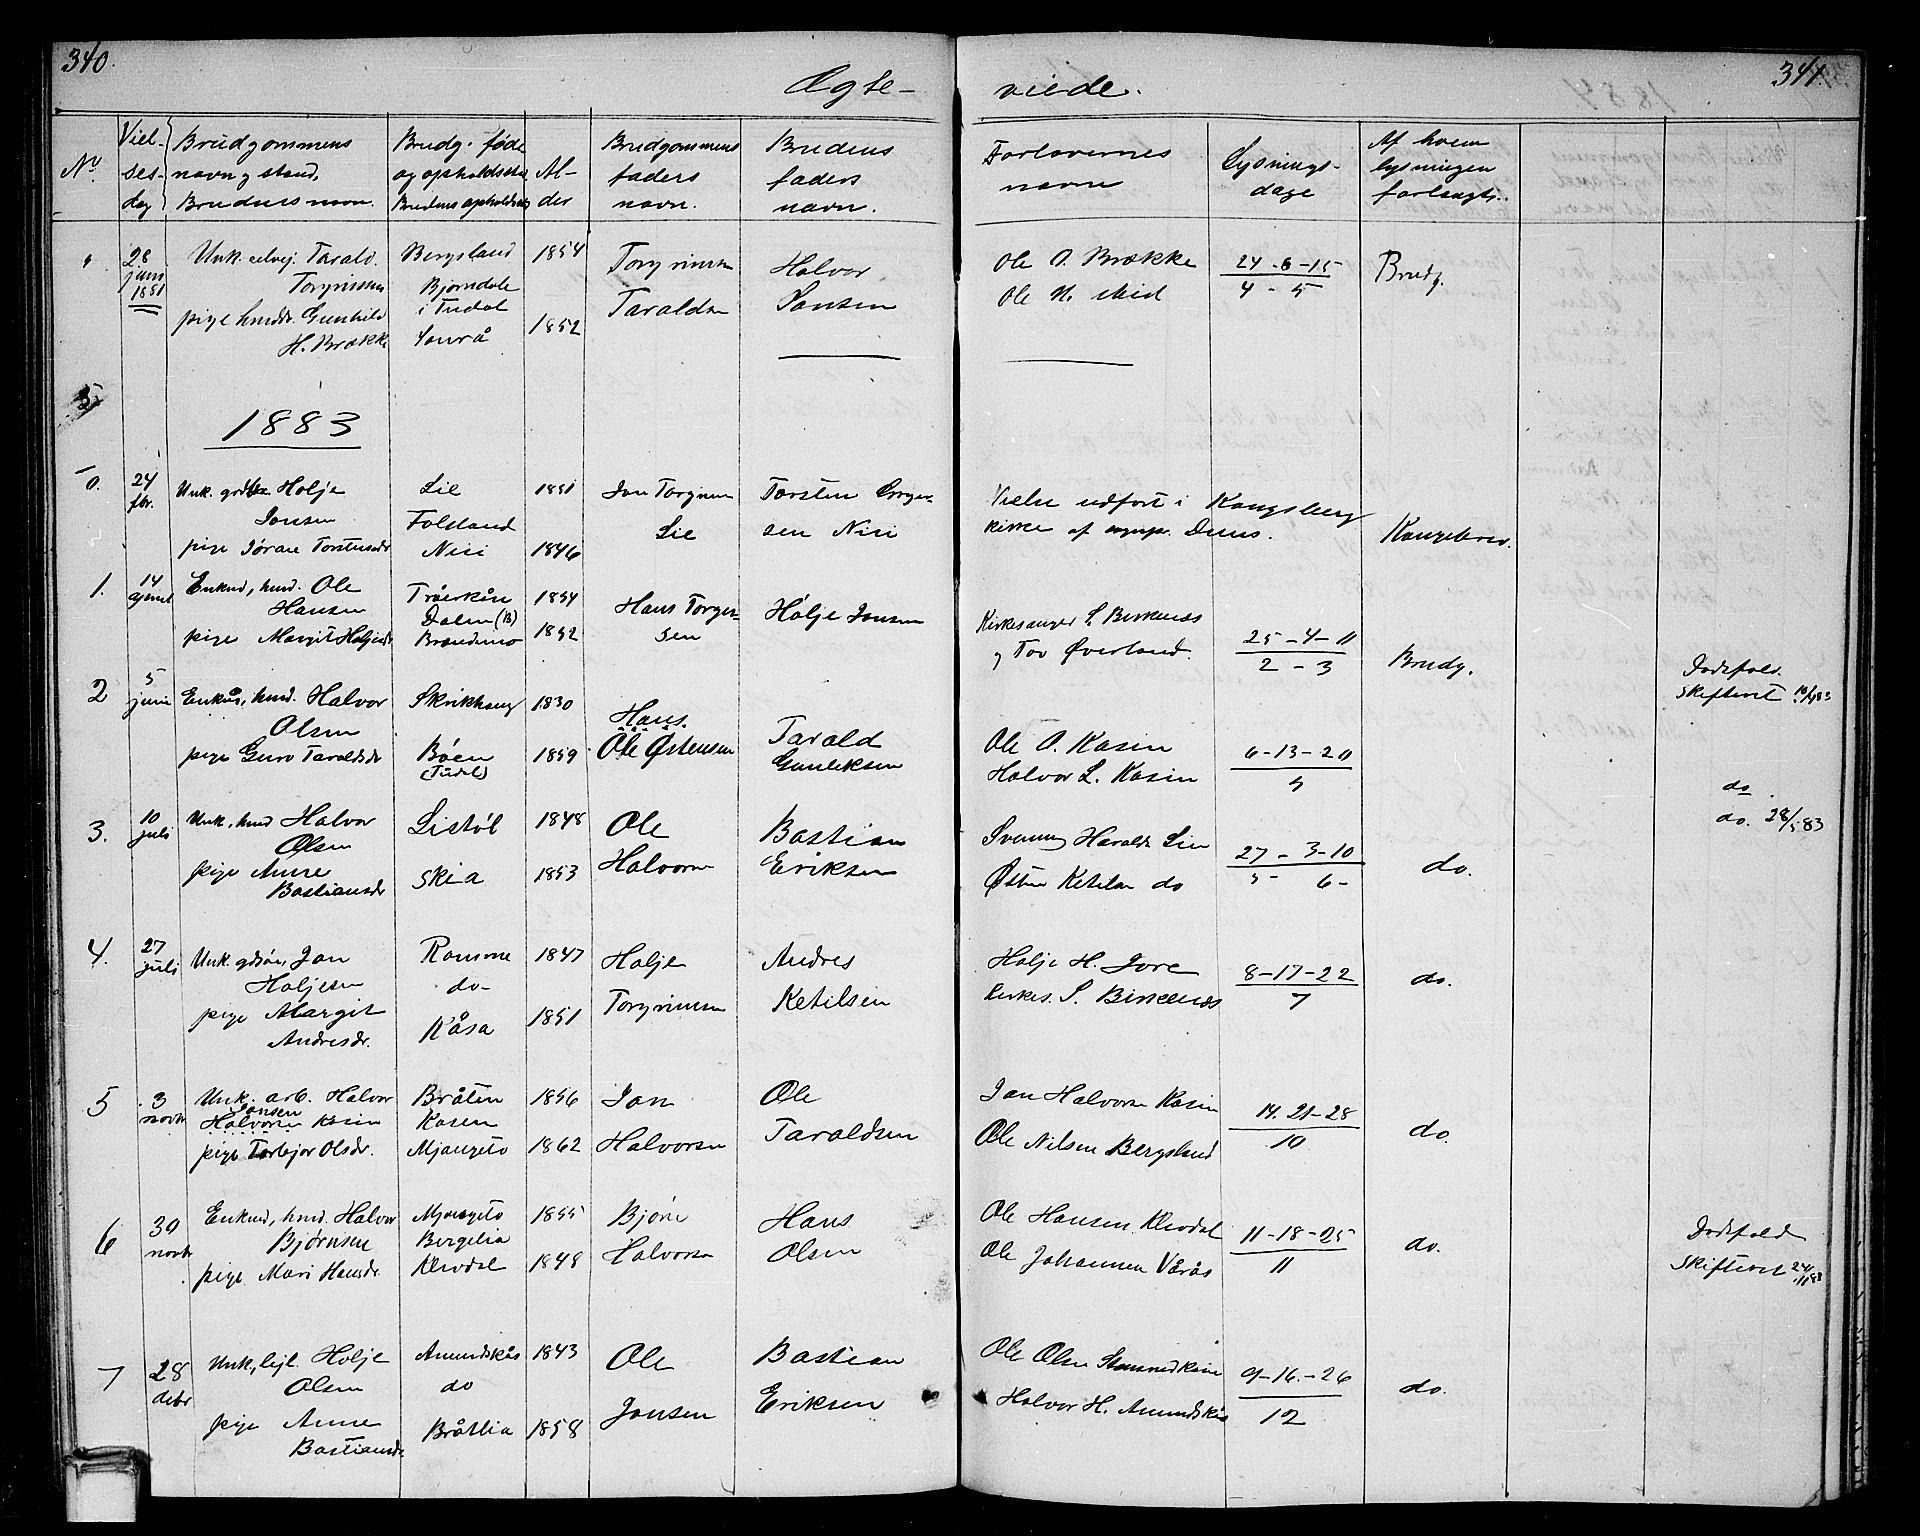 340.
341.
Ægte-
viede.
No.
Viel-
ses-
dag
Brudgommens
navn og stand,
Brudens navn.
Brudg. føde
og opholdssted
Brudens opholdssted
Al-
der
Brudgommens
faders
navn.
Brudens
faders
navn.
Forlovernes
navne
Lysnings-
dage
Af hvem
lysningen
forlangt.
28
juni
1881
Unk. selvej. Tarald
Torgrimsen
pige husdtr. Gunhild
H. Brække
Bergsland
Bjørndale
i Tudal
1854
1852
Torgrimsen
Taraldsen
Halvor
Jansen
Ole O. Brække
Ole N. Mid
24-6-15
4-5
Brudg.
1883
0.
24
fbr.
Unk. Holje
Jonsen
pige Jørane Torstensdr
Lie
Folseland
Nisi
1851
1846
Jon Torgrimsen
Lie
Torsten Gregersen
sen Nisi
Vielse udført i Kongsberg
kirke af sognepr. Duus.
Kongebrev.
1.
14
april
Enkmd, husd. Ole
Hansen
pige Margit Holjesdr
Dalen (B)
Brændmo
1854
1852
Hans Torger-
sen
Hölje Jonsen
Kirkesanger S. Birkenes
og Tov Øverland.
25-4-11
2-3
Brudg.
Dødsfald.
Skifteret 10/4 83
2
5
juni
Enkm, husd. Halvor
Olsen
pige Guro Taraldsdr
Skrikhaug
Böen
(Tudal)
1830
1859
Hans.
Ole Østensen
Tarald
Gunleksen
Ole O. Kasin
Halvor L. Kasin
6-13-20
5
do.
do. 28/5 83
3.
10
juli
Unk. husd Halvor
Olsen
pige Anne
Bastiansdr
Listöl
Skia
1848
1853
Ole
Halvorsen
Bastian
Eriksen
Svenning Haralds Lien
Østen Ketilsen do
27-3-10
5-6-
do.
4.
27
juli
Unk. gdsön, Jon
Holjesen
pige Margit
Andresdr.
Ramme
do-
Kåsa
1847
1851
Holje
Torgrimsen
Andres
Ketilsen
Holje H. Jore
Kirkes. S. Birkenes
8-17-22
7
do.
5
3
novbr
Unk. arb. Halvor
Jansen
Halvorsen Kasin
pige Torbjør Olsdr.
Bråten
Kasen
Mjaugeto
1856
1862
Jan
Halvorsen
Ole
Taraldsen
Jan Halvorsen Kasin
Ole Nilsen Bergsland
14.21-28
10
do.
6
30
novbr
Enkmd, husd. Halvor
Bjørnsen
pige Mari Hansdr.
Mjaugeto
Bergelia
Klevdal
1855
1848
Bjørn
Halvorsen
Hans
Olsen
Ole Hansen Klevdal
Ole Johannsen Vårås
11-18-25
11
do.
Dødsfald
Skifteret 24/11 83
7
28
debr
Unk, lejl. Holje
Olsen
pige Anne
Bastiansdr.
Amundskås
do
Bråtlia
1843
1858
Ole
Jonsen
Bastian
Eriksen
Ole Olsen
Halvor H. Amundskås
9-16.-26
12
do.